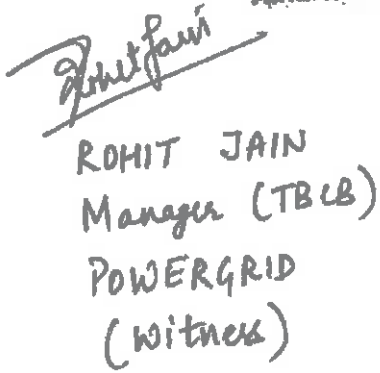 Rohit Jain
ROHIT JAIN
Manager (TBCB)
POWERGRID
(Witness)